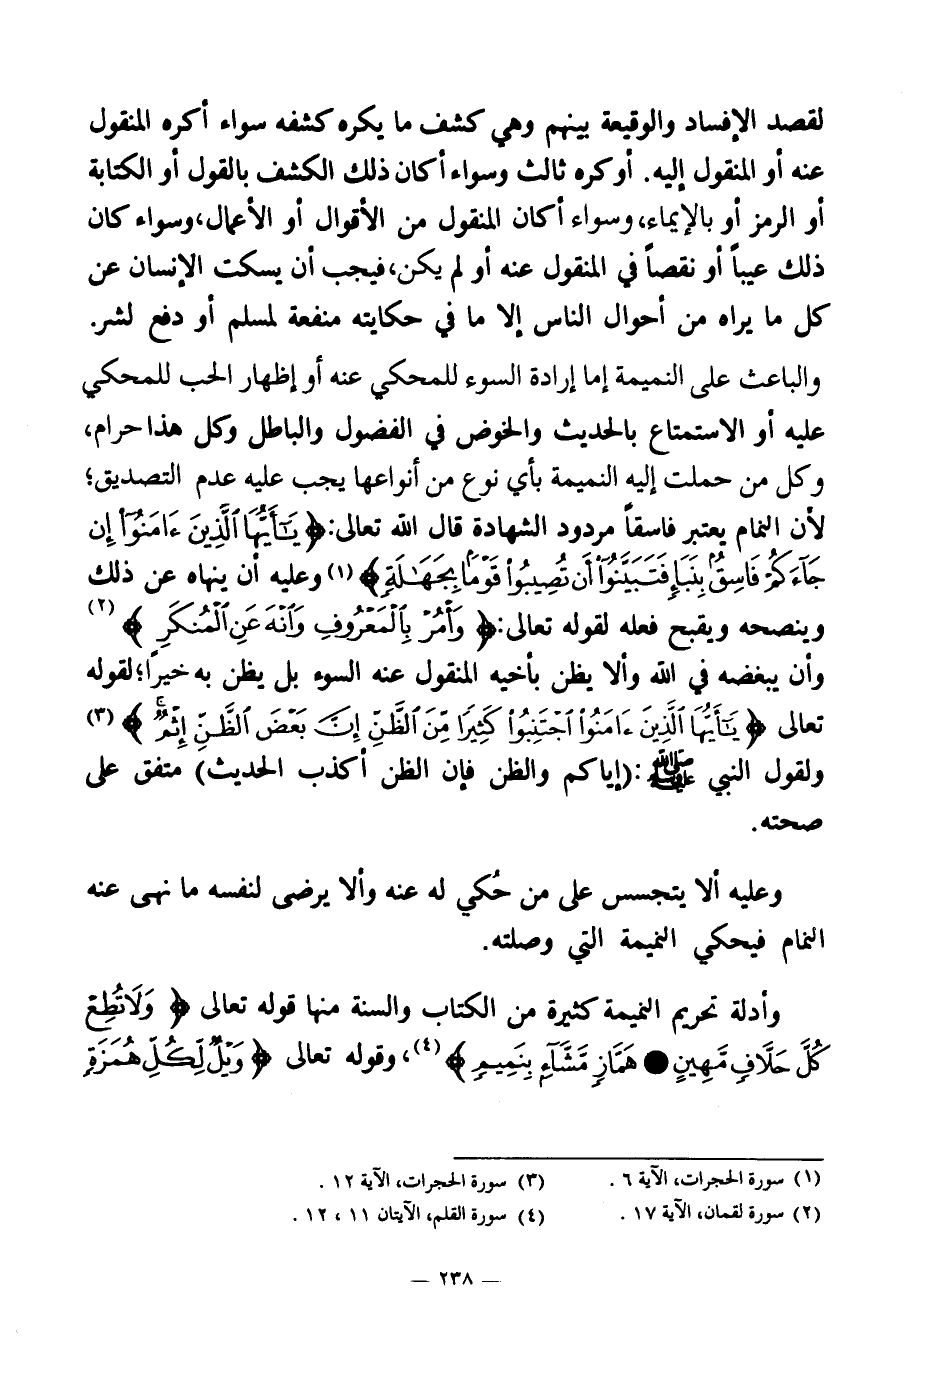 لقصد الإفساد والوقيعة بينهم وهي كشف ما يكره كشفه سواء أكره المنقول
عنه أو المنقول إليه. أو كره ثالث وسواء أكان ذلك الكشف بالقول أو الكتابة
أو الرمز أو بالإيماء، وسواء أكان المنقول من الأقوال أو الأعمال، وسواء كان
ذلك عيباً أو نقصاً في المنقول عنه أو لم يكن، فيجب أن يسكت الإنسان عن
كل ما يراه من أحوال الناس إلا ما في حكايته منفعة لمسلم أو دفع لشر.
والباعث على النميمة إما إرادة السوء للمحكي عنه أو إظهار الحب للمحكي
عليه أو الاستمتاع بالحديث والخوض في الفضول والباطل وكل هذا حرام،
وكل من حملت إليه النميمة بأي نوع من أنواعها يجب عليه عدم التصديق؛
لأن النمام يعتبر فاسقاً مردود الشهادة قال الله تعالى: ﴿ يَـٰٓأَيُّهَا ٱلَّذِينَ ءَامَنُوٓا۟ إِن
جَآءَكُمْ فَاسِقٌۢ بِنَبَإٍ فَتَبَيَّنُوٓا۟ أَن تُصِيبُوا۟ قَوْمًۢا بِجَهَـٰلَةٍ ﴾ (١) وعليه أن ينهاه عن ذلك
وينصحه ويقبح فعله لقوله تعالى: ﴿ وَأْمُرْ بِٱلْمَعْرُوفِ وَٱنْهَ عَنِ ٱلْمُنكَرِ ﴾ (٢)
وأن يبغضه في الله وألا يظن بأخيه المنقول عنه السوء بل يظن به خيراً؛ لقوله
تعالى ﴿ يَـٰٓأَيُّهَا ٱلَّذِينَ ءَامَنُوا۟ ٱجْتَنِبُوا۟ كَثِيرًا مِّنَ ٱلظَّنِّ إِنَّ بَعْضَ ٱلظَّنِّ إِثْمٌ ۖ ﴾ (٣)
ولقول النبي ﷺ: (إياكم والظن فإن الظن أكذب الحديث) متفق على
صحته.
وعليه ألا يتجسس على من حُكي له عنه وألا يرضى لنفسه ما نهى عنه
النمام فيحكي النميمة التي وصلته.
وأدلة تحريم النميمة كثيرة من الكتاب والسنة منها قوله تعالى ﴿ وَلَا تُطِعْ
كُلَّ حَلَّافٍ مَّهِينٍ ● هَمَّازٍ مَّشَّآءٍ بِنَمِيمٍ ﴾ (٤)، وقوله تعالى ﴿ وَيْلٌ لِّكُلِّ هُمَزَةٍ
(١) سورة الحجرات، الآية ٦ .
(٢) سورة لقمان، الآية ١٧ .
(٣) سورة الحجرات، الآية ١٢ .
(٤) سورة القلم، الآيتان ١١ ، ١٢ .
— ٢٣٨ —